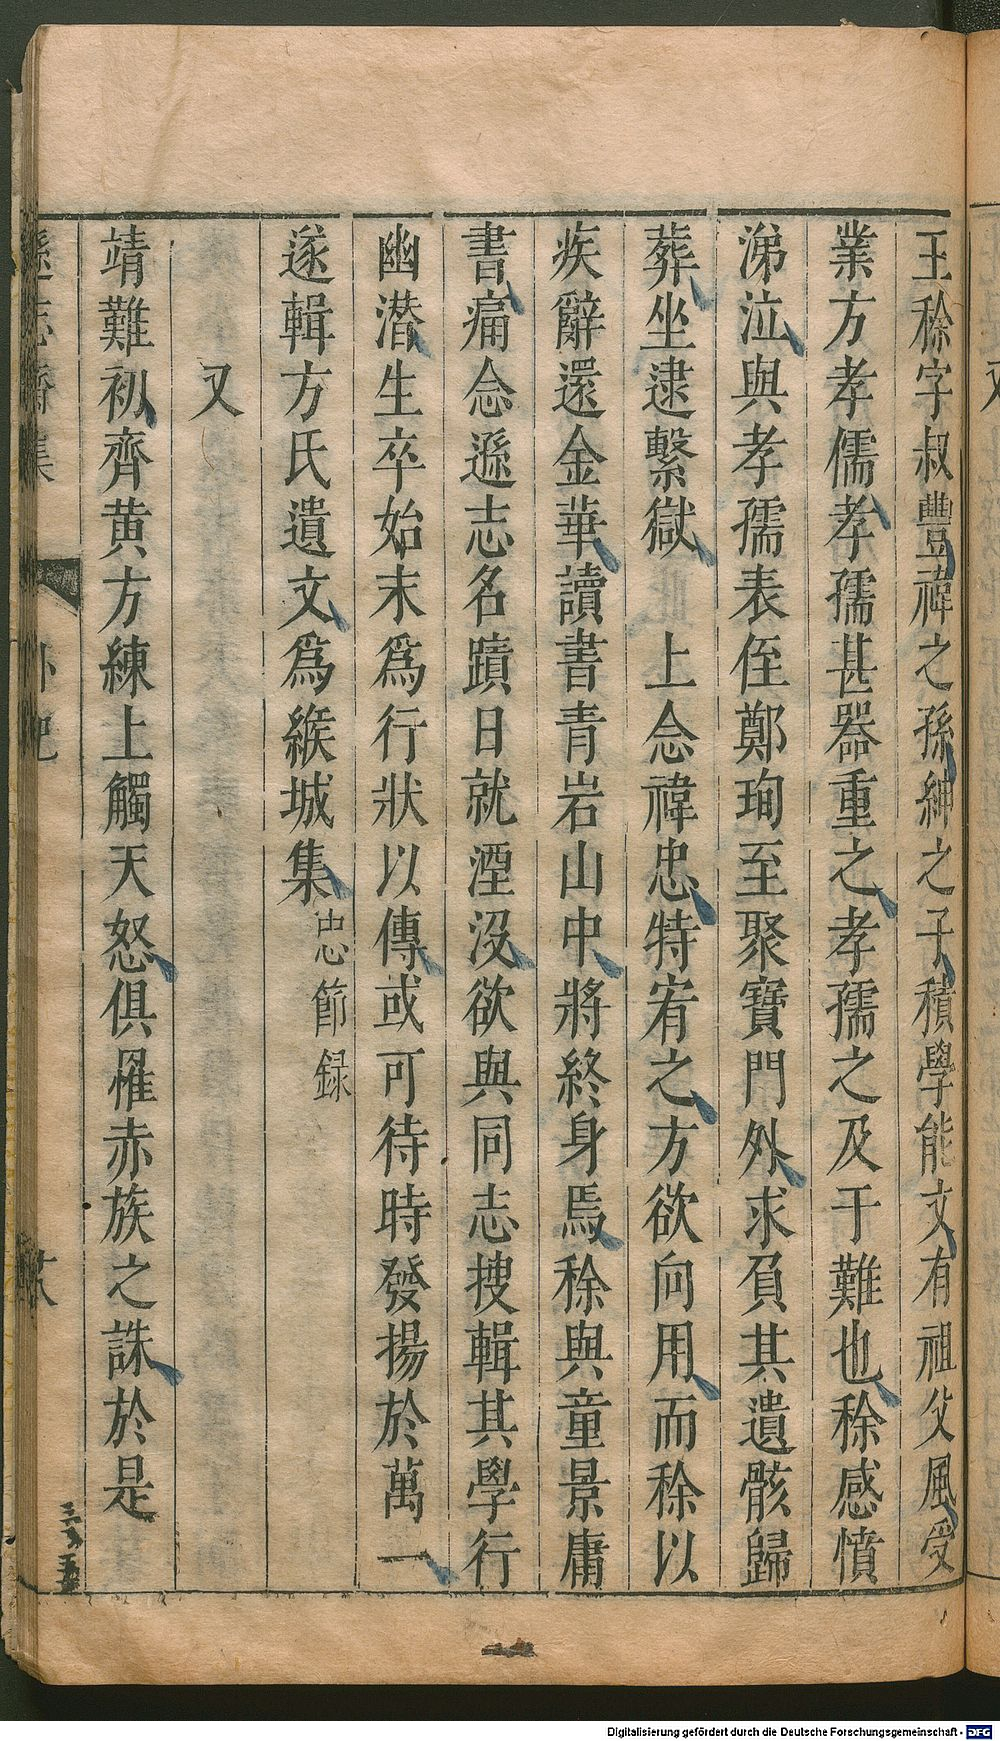 王稌字叔豐禕之孫紳之子積學能文有祖父風受
業方孝儒孝孺甚器重之孝孺之及于難也稌感憤
涕泣與孝孺表侄鄭珣至聚寶門外求負其遺骸歸
葬坐逮繫獄 上念禕忠特宥之方欲向用而稌以
疾辭還金華讀書青岩山中將終身焉稌與童景庸
書痛念遜志名蹟日就湮沒欲與同志搜輯其學行
幽潜生卒始末爲行狀以傳或可待時發揚於萬一
遂輯方氏遺文爲緱城集忠節録
又
靖難初齊黃方練上觸天怒俱罹赤族之誅於是
遜志齋集 外紀
Digitalisierung gefördert durch die Deutsche Forschungsgemeinschaft - DFG